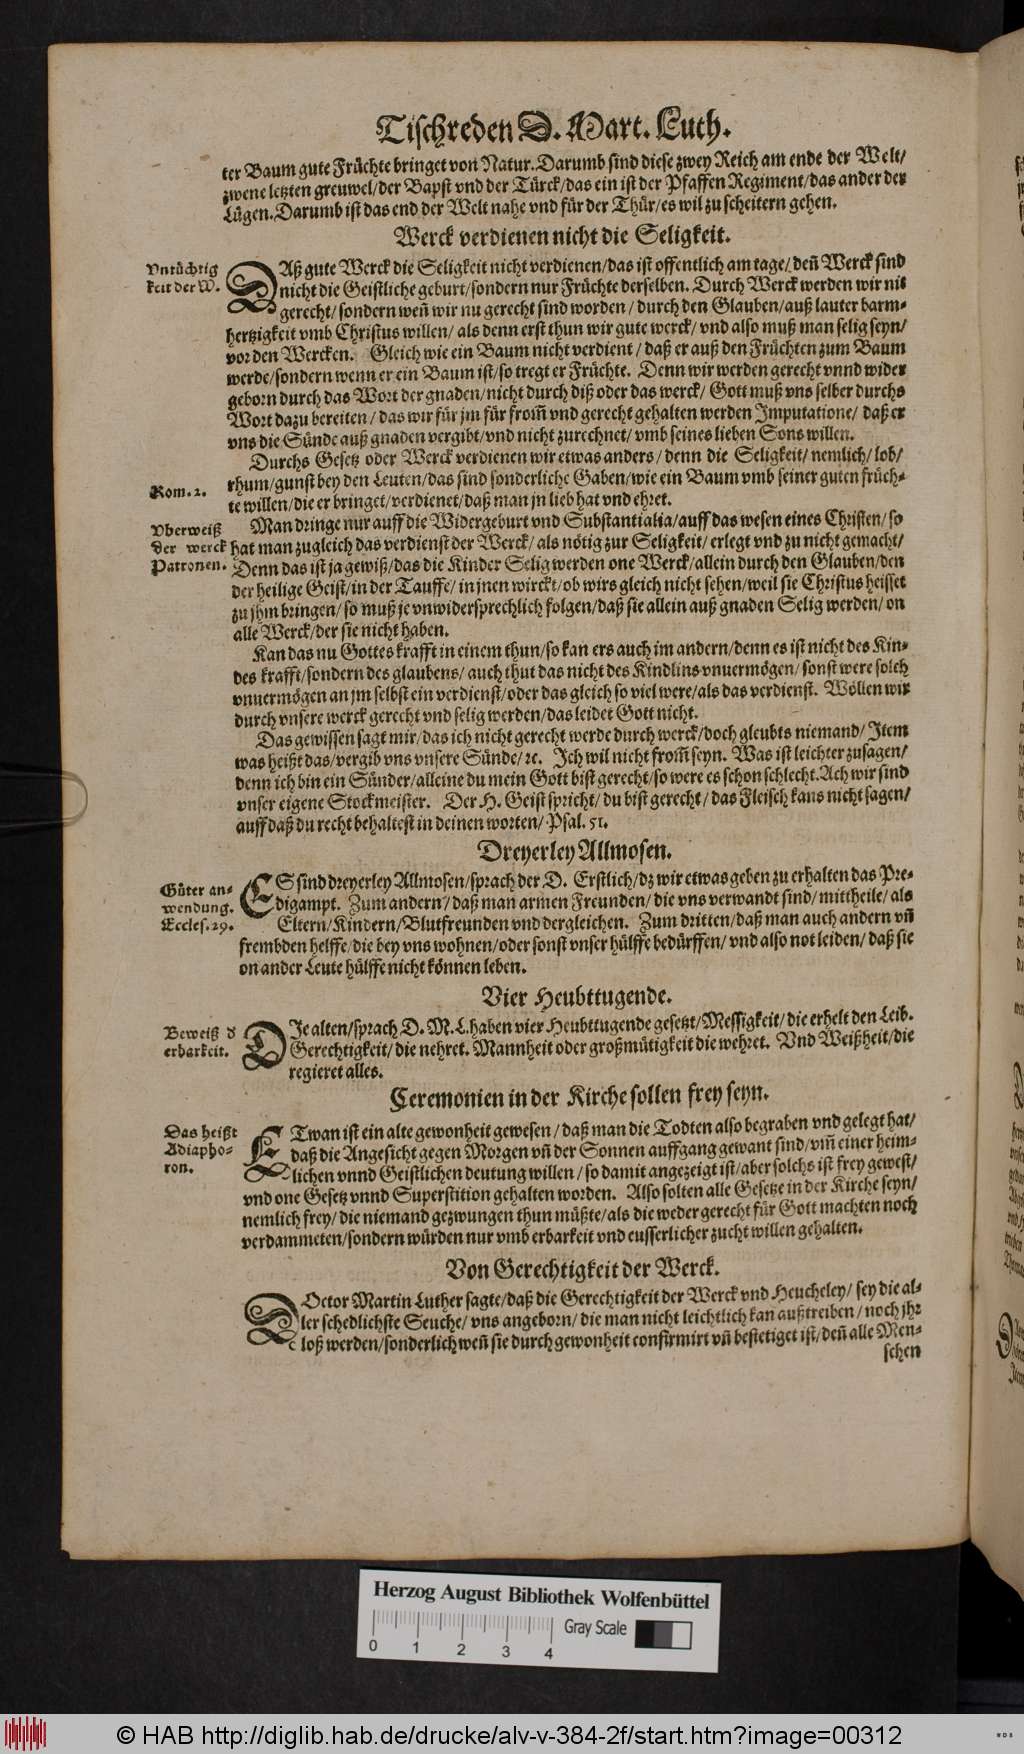 Tischreden D. Mart. Luth.
ter Baum gute Früchte bringet von Natur. Darumb sind diese zwey Reich am ende der Welt/
zwene letzten greuwel/der Bapst vnd der Türck/das ein ist der Pfaffen Regiment/das ander der
Lügen. Darumb ist das end der Welt nahe vnd für der Thür/es wil zu scheitern gehen.
Werck verdienen nicht die Seligkeit.
Vntüchtig
keit der W.
DAß gute Werck die Seligkeit nicht verdienen/das ist offentlich am tage/ deñ Werck sind
nicht die Geistliche geburt/sondern nur Früchte derselben. Durch Werck werden wir nit
gerecht/ sondern weñ wir nu gerecht sind worden / durch den Glauben/auß lauter barm-
hertzigkeit vmb Christus willen/ als denn erst thun wir gute werck/ vnd also muß man selig seyn/
vor den Wercken. Gleich wie ein Baum nicht verdient / daß er auß den Früchten zum Baum
werde/sondern wenn er ein Baum ist/so tregt er Früchte. Denn wir werden gerecht vnnd wider
geborn durch das Wort der gnaden/nicht durch diß oder das werck/ Gott muß vns selber durchs
Wort dazu bereiten / das wir für jm für from̃ vnd gerecht gehalten werden Imputatione/ daß er
vns die Sünde auß gnaden vergibt/vnd nicht zurechnet/ vmb seines lieben Sons willen.
Durchs Gesetz oder Werck verdienen wir etwas anders/ denn die Seligkeit/ nemlich/ lob/
rhum/gunst bey den Leuten/das sind sonderliche Gaben/wie ein Baum vmb seiner guten früch-
te willen/die er bringet/verdienet/daß man jn lieb hat vnd ehret.
Rom. 2.
Vberweiß
der werck
Patronen.
Man dringe nur auff die Widergeburt vnd Substantialia/auff das wesen eines Christen/ so
hat man zugleich das verdienst der Werck/ als nötig zur Seligkeit/ erlegt vnd zu nicht gemacht/
Denn das ist ja gewiß/das die Kinder Selig werden one Werck/allein durch den Glauben/den
der heilige Geist/in der Tauffe/ in jnen wirckt/ob wirs gleich nicht sehen/weil sie Christus heisset
zu jhm bringen/ so muß je vnwidersprechlich folgen/daß sie allein auß gnaden Selig werden/ on
alle Werck/der sie nicht haben.
Kan das nu Gottes krafft in einem thun/so kan ers auch im andern/denn es ist nicht des Kin-
des krafft/sondern des glaubens/ auch thut das nicht des Kindlins vnuermögen/ sonst were solch
vnuermögen an jm selbst ein verdienst/oder das gleich so viel were/als das verdienst. Wöllen wir
durch vnsere werck gerecht vnd selig werden/das leidet Gott nicht.
Das gewissen sagt mir/das ich nicht gerecht werde durch werck/doch gleubts niemand/ Item
was heißt das/vergib vns vnsere Sünde/ ꝛc. Ich wil nicht from̃ seyn. Was ist leichter zusagen/
denn ich bin ein Sünder/alleine du mein Gott bist gerecht/so were es schon schlecht. Ach wir sind
vnser eigene Stockmeister. Der H. Geist spricht/ du bist gerecht/ das Fleisch kans nicht sagen/
auff daß du recht behaltest in deinen worten/ Psal. 51.
Dreyerley Allmosen.
Güter an-
wendung.
Eccles. 29.
ES sind dreyerley Allmosen/sprach der D. Erstlich/dz wir etwas geben zu erhalten das Pre-
digampt. Zum andern/ daß man armen Freunden/ die vns verwandt sind/ mittheile/ als
Eltern/Kindern/Blutfreunden vnd dergleichen. Zum dritten/daß man auch andern vñ
frembden helffe/die bey vns wohnen/oder sonst vnser hülffe bedürffen/ vnd also not leiden/ daß sie
on ander Leute hülffe nicht können leben.
Vier Heubttugende.
Beweiß d
erbarkeit.
DIe alten/sprach D. M. L. haben vier Heubttugende gesetzt/Messigkeit/die erhelt den Leib.
Gerechtigkeit/ die nehret. Mannheit oder großmütigkeit die wehret. Vnd Weißheit/die
regieret alles.
Ceremonien in der Kirche sollen frey seyn.
Das heißt
Adiapho-
ron.
ETwan ist ein alte gewonheit gewesen/ daß man die Todten also begraben vnd gelegt hat/
daß die Angesicht gegen Morgen vñ der Sonnen auffgang gewant sind/vm̃ einer heim-
lichen vnnd Geistlichen deutung willen/ so damit angezeigt ist/aber solchs ist frey gewest/
vnd one Gesetz vnnd Superstition gehalten worden. Also solten alle Gesetze in der Kirche seyn/
nemlich frey/ die niemand gezwungen thun müßte/als die weder gerecht für Gott machten noch
verdammeten/sondern würden nur vmb erbarkeit vnd eusserlicher zucht willen gehalten.
Von Gerechtigkeit der Werck.
DOctor Martin Luther sagte/daß die Gerechtigkeit der Werck vnd Heucheley/ sey die al-
ler schedlichste Seuche/ vns angeborn/ die man nicht leichtlich kan außtreiben/ noch jhr
loß werden/sonderlich weñ sie durch gewonheit confirmirt vñ bestetiget ist/deñ alle Men-
schen
Herzog August Bibliothek Wolfenbüttel
Gray Scale
0 1 2 3 4
© HAB http://diglib.hab.de/drucke/alv-v-384-2f/start.htm?image=00312